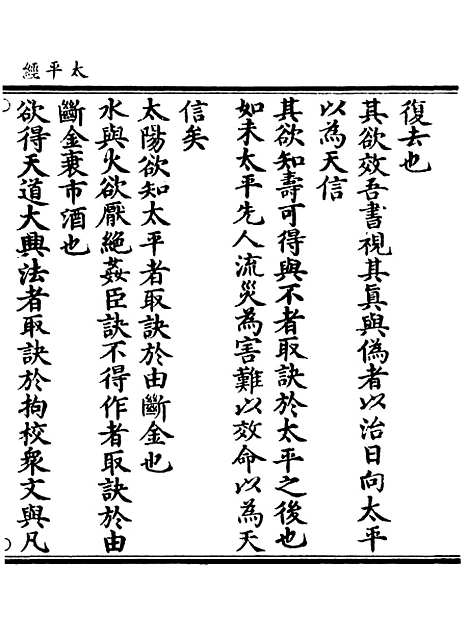 太平經
復去也
其欲效吾書視其真與偽者以治日向太平
以為天信
其欲知壽可得與不者取訣於太平之後也
如未太平先人流災為害難以效命以為天
信矣
太陽欲知太平者取訣於由斷金也
水與火欲厭絕姦臣訣不得作者取訣於由
斷金衰市酒也
欲得天道大興法者取訣於拘校眾文與凡